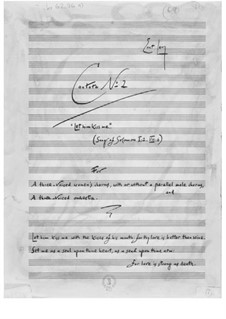 Cantata No. 2
"Let him kiss me"
(Song of Solomon I:2.
For
A three-voiced women's chorus, with or without a parallel male chorus,
and
A three voiced orchestra.
Let him kiss me with the kisses of his mouth: for thy love is better than wine.
Set me as a seal upon thine heart, as a seal upon thine arm:
for love is strong as death.